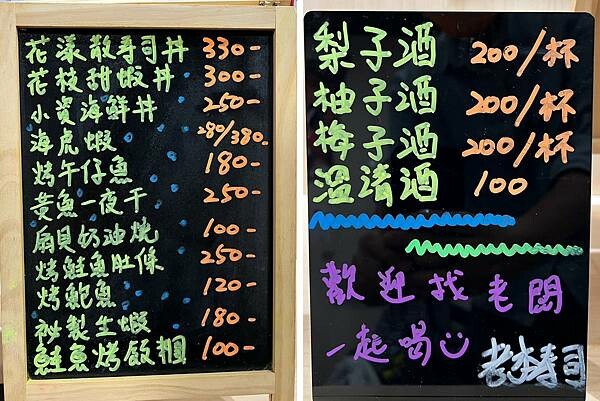 花漾散寿司丼 330-
花枝甜蝦丼 300-
小資海鮮丼 250-
海虎蝦 280/380-
烤午仔魚 180-
黃魚一夜干 250-
扇貝奶油燒 100-
烤鮭魚肚條 250-
烤鮑魚 120-
秘製生蝦 180-
鮭魚烤飯糰 100-
梨子酒 200/杯
柚子酒 200/杯
梅子酒 200/杯
溫清酒 100
歡迎找老闆
一起喝
老李寿司